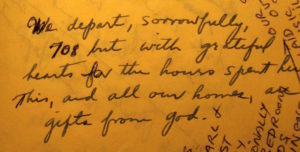 We depart, sorrowfully,
708 but with grateful
hearts for the hours spent he
This, and all our homes, a
gifts from god.
ARL &
ST
ONALLY
EDROOMS